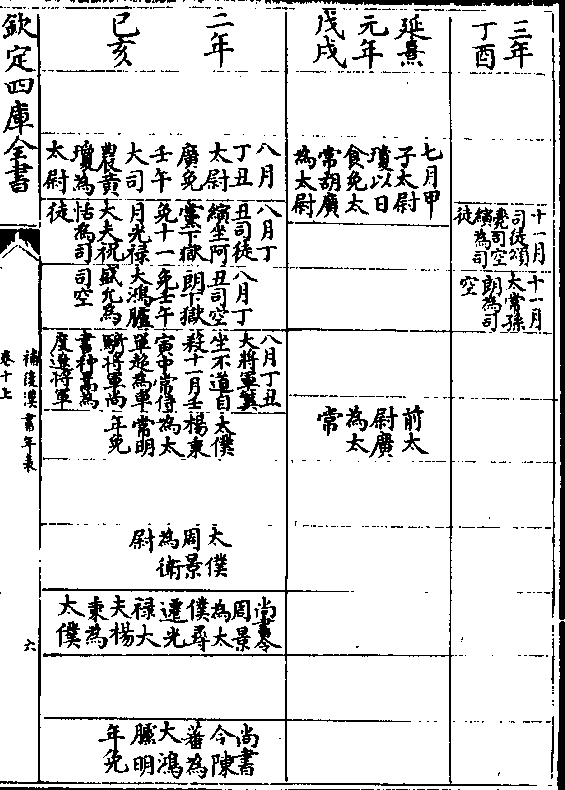 三年
丁酉
十一月
司徒頌
薨司空
縯為司
徒
十一月
太常孫
朗為司
空
延熹
元年
戊戌
七月甲
子太尉
瓊以日
食免太
常胡廣
為太尉
前太
尉廣
為太
常
二年
己亥
八月
丁丑
太尉
廣免
壬午
大司
農黃
瓊為
太尉
八月丁
丑司徒
縯坐阿
黨下獄
免十一
月光祿
大夫祝
恬為司
徒
八月丁
丑司空
朗下獄
免壬午
大鴻臚
盛允為
司空
八月丁丑
大將軍冀
坐不道自
殺十一月壬
寅中常侍
單超為車
騎將軍尚
書种暠為
度遼將軍
太僕
楊秉
為太
常明
年免
太僕
周景
為衛
尉
尚書令
周景
為太
僕尋
遷光
祿大
夫楊
秉為
太僕
尚書
令陳
蕃為
大鴻
臚明
年免
欽定四庫全書
補後漢書年表
卷十上
六